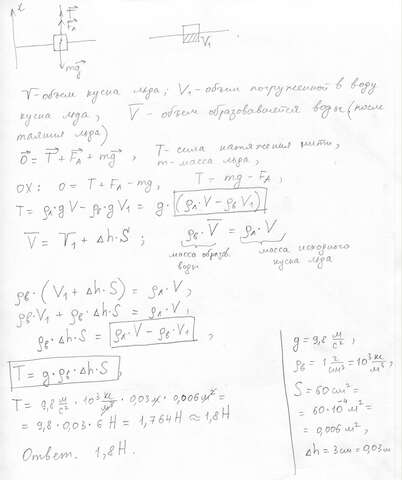 x
T
F_A
mg
V₁
V - объем куска льда; V₁ - объем погруженной в воду
куска льда; V̅ - объем образовавшейся воды (после
таяния льда)
0⃗ = T⃗ + F⃗_A + mg⃗, T - сила натяжения нити,
m - масса льда,
OX: 0 = T + F_A - mg, T = mg - F_A,
T = ρ_л·gV - ρ_в·gV₁ = g·(ρ_л·V - ρ_в V₁)
V̅ = V₁ + Δh·S; ρ_в·V̅ = ρ_л·V
масса образов. воды
масса исходного куска льда
ρ_в·(V₁ + Δh·S) = ρ_л·V,
ρ_в·V₁ + ρ_в·Δh·S = ρ_л·V,
ρ_в·Δh·S = ρ_л·V - ρ_в·V₁,
T = g·ρ_в·Δh·S,
T = 9,8 м/с² · 10³ кг/м³ · 0,03м · 0,006м² =
= 9,8·0,03·6 Н = 1,764Н ≈ 1,8Н
Ответ. 1,8Н.
g = 9,8 м/с²,
ρ_в = 1 г/см³ = 10³ кг/м³,
S = 60см² =
= 60·10⁻⁴м² =
= 0,006м²,
Δh = 3см = 0,03м